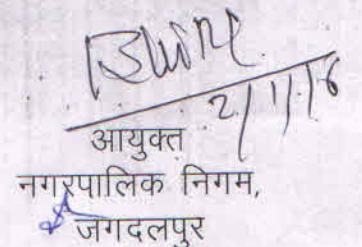 2/11/16
आयुक्त
नगरपालिक निगम,
जगदलपुर